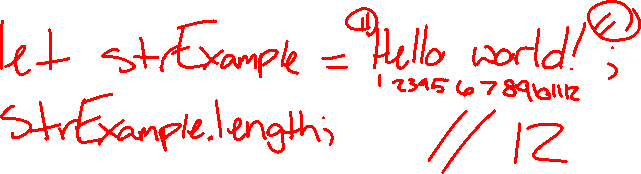 let strExample = "Hello world!";
1 2 3 4 5 6 7 8 9 10 11 12
strExample.length; // 12